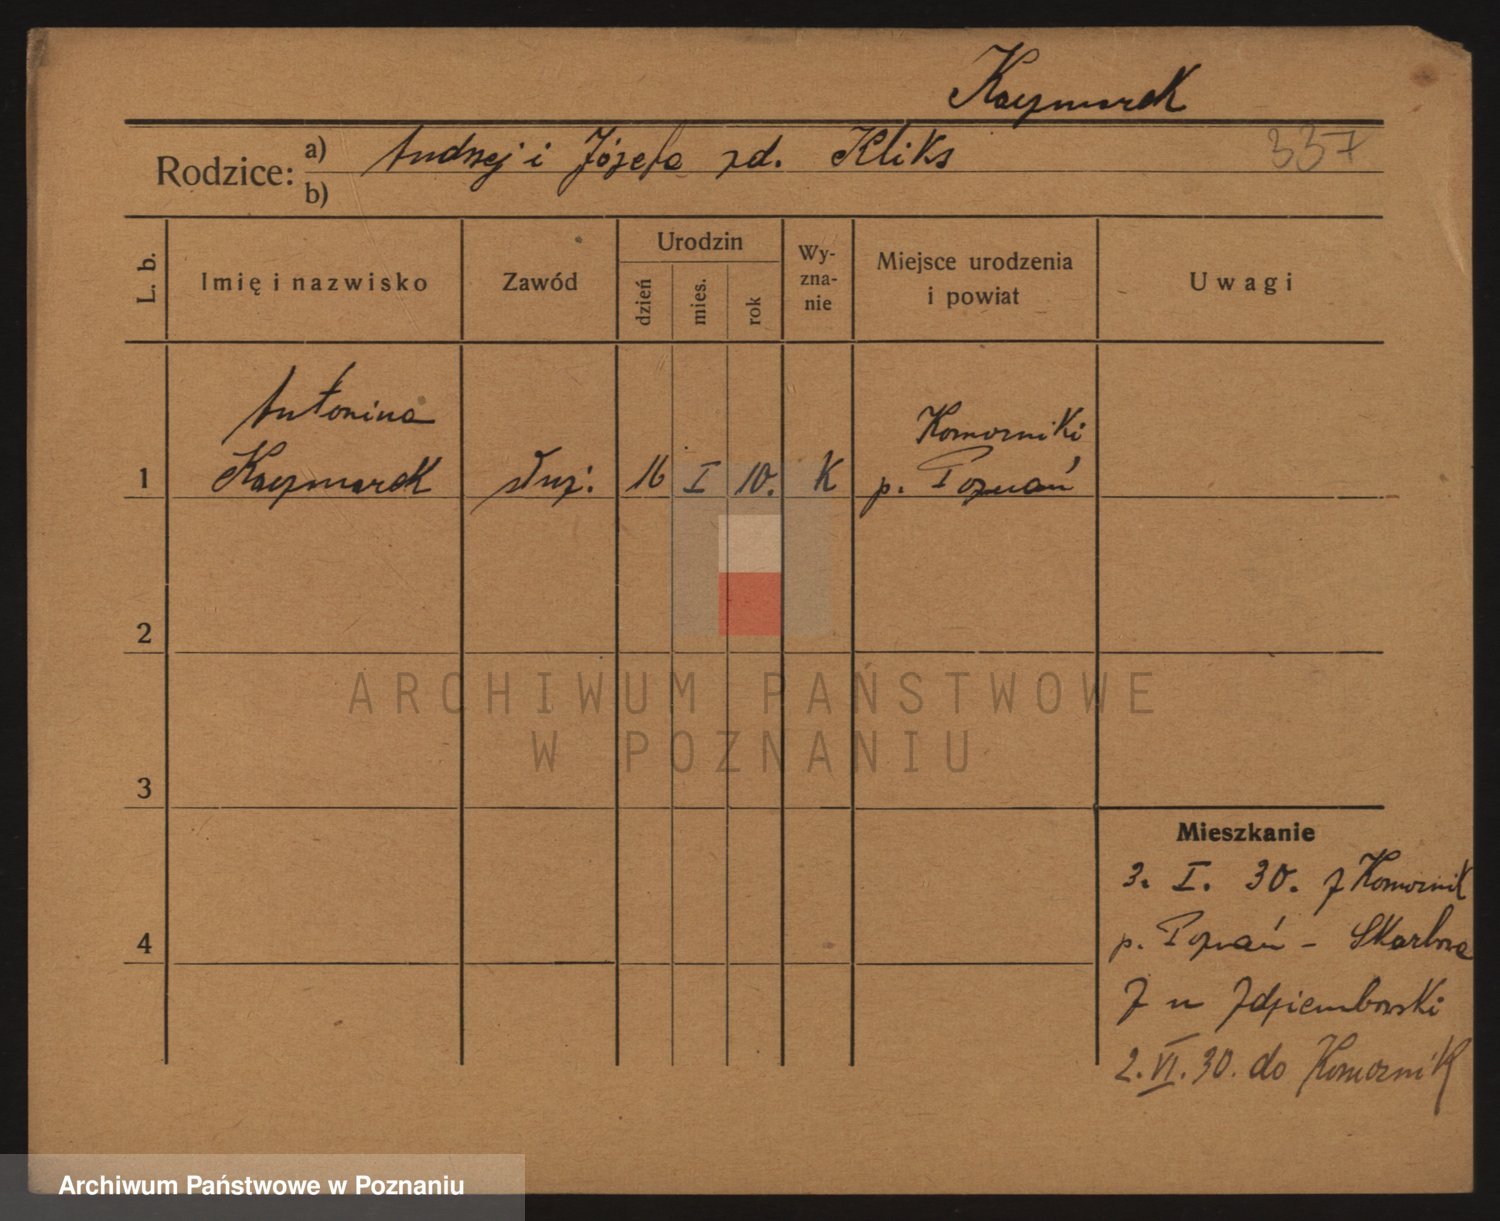 Kaczmarek
337
Rodzice: a) Andrzej i Józefa zd. Kliks
b)
L. b.
Imię i nazwisko
Zawód
Urodzin
dzień
mies.
rok
Wy-
zna-
nie
Miejsce urodzenia
i powiat
Uwagi
Antonina Komorniki
1 Kaczmarek służ. 16 I 10. K p. Poznań
2
3
4
Mieszkanie
3. I. 30. z Komornik
p. Poznań - Skarbowa
7 u Zdziembowski
2. VI. 30. do Komornik
ARCHIWUM PAŃSTWOWE
W POZNANIU
Archiwum Państwowe w Poznaniu